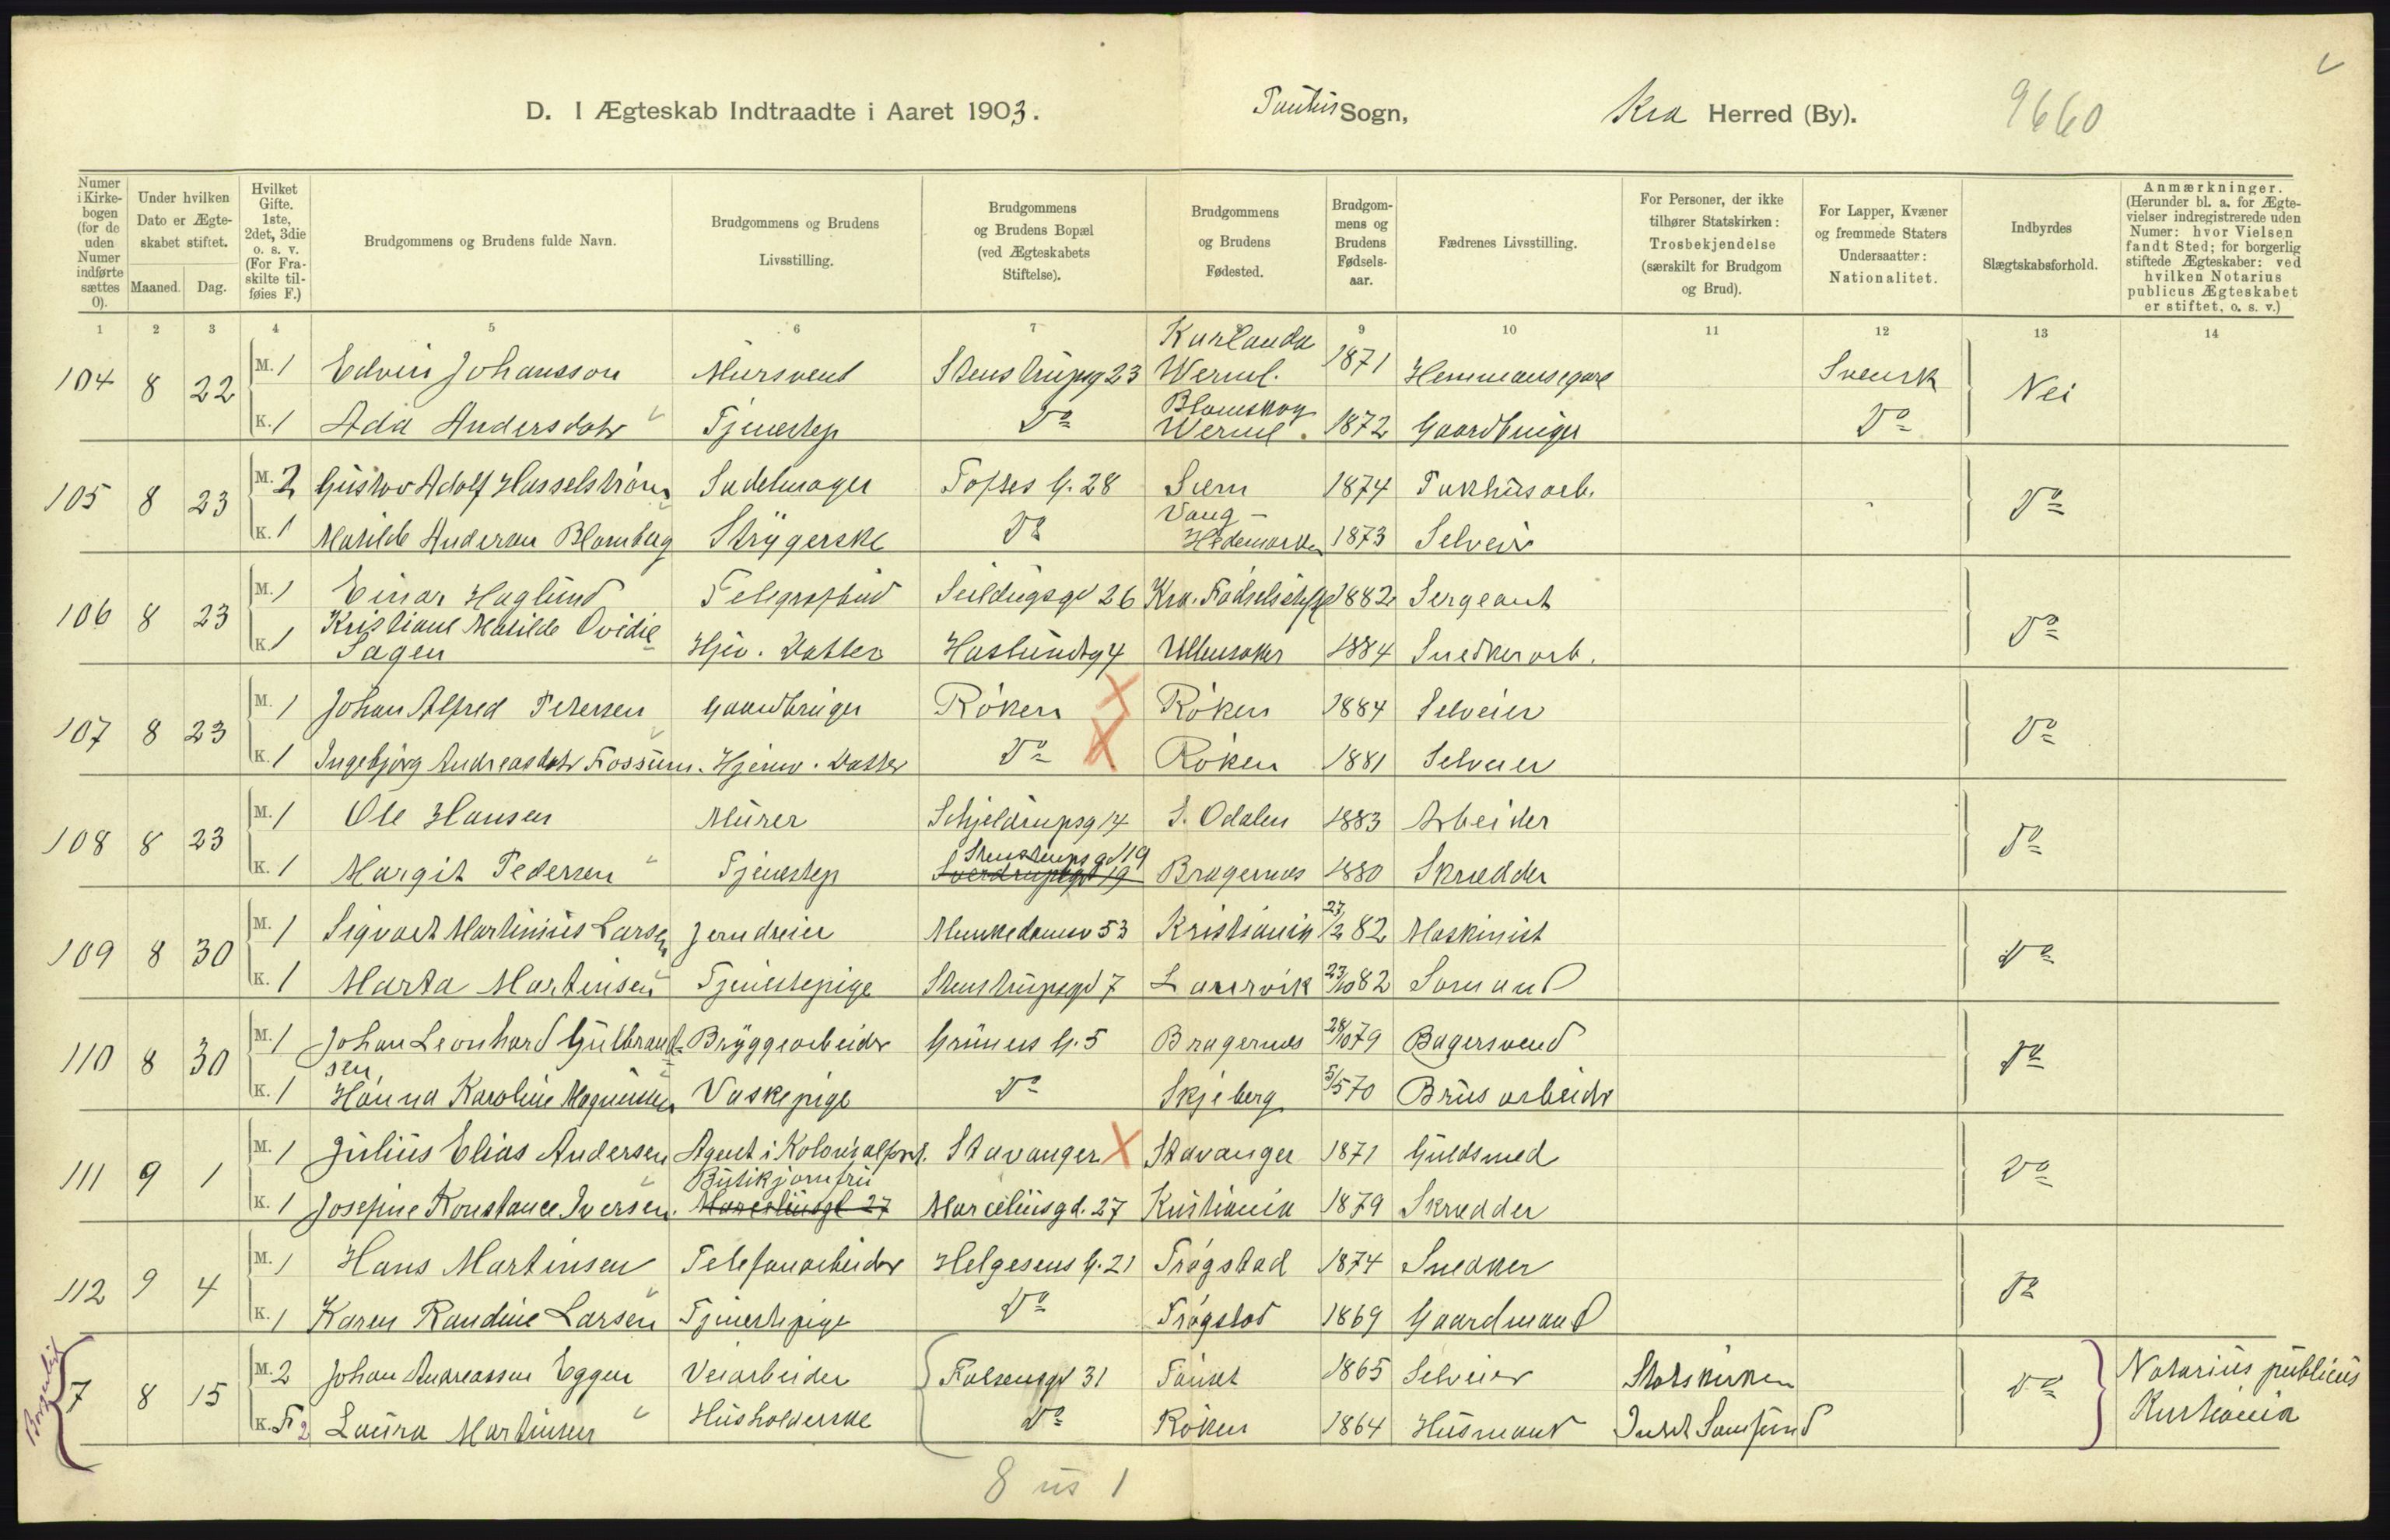 D. I Ægteskab Indtraadte i Aaret 1903. Paulus Sogn, Kra Herred (By). 9660
Numer i Kirkebogen (for de uden Numer indførte sættes 0). Under hvilken Dato er Ægteskabet stiftet. Maaned. Dag. Hvilket Gifte. 1ste, 2det, 3die o. s. v. (For Fraskilte tilføies F.) Brudgommens og Brudens fulde Navn. Brudgommens og Brudens Livsstilling. Brudgommens og Brudens Bopæl (ved Ægteskabets Stiftelse). Brudgommens og Brudens Fødested. Brudgommens og Brudens Fødselsaar. Fædrenes Livsstilling. For Personer, der ikke tilhører Statskirken: Trosbekjendelse (særskilt for Brudgom og Brud). For Lapper, Kvæner og fremmede Staters Undersaatter: Nationalitet. Indbyrdes Slægtskabsforhold. Anmærkninger. (Herunder bl. a. for Ægtevielser indregistrerede uden Numer: hvor Vielsen fandt Sted; for borgerlig stiftede Ægteskaber: ved hvilken Notarius publicus Ægteskabet er stiftet, o. s. v.)
1 2 3 4 5 6 7 9 10 11 12 13 14
104 8 22 M. 1 Edvin Johansson Mursvend Stenstrupsg 23 Karlanda Werml. 1871 Hemmansegare Svensk Nei
K. 1 Ada Andersdotr Tjenestep Do Blomskog Werml. 1872 Gaardbruger Do
105 8 23 M. 2 Gustav Adolf Hasselstrøm Sadelmager Toftes G. 28 Sem 1874 Pakhusarb. Do
K. 1 Matilde Andersen Blomberg Strygerske Do Vang - Hedemarken 1873 Selveier
106 8 23 M. 1 Einar Haglund Telegrafbud Seildugsgd 26 Kra. Fødselsstift 1882 Sergeant Do
K. 1 Kristiane Matilde Ovidie Sagen Hjev. Datter Haslundsg 4 Ullensaker 1884 Snedkerarb.
107 8 23 M. 1 Johan Alfred Petersen Gaardbruger Røken X Røken 1884 Selveier Do
K. 1 Ingebjørg Andreasdatr Fossum. Hjemv. Datter Do X Røken 1881 Selveier
108 8 23 M. 1 Ole Hansen Murer Schjeldrupsg 14 S. Odalen 1883 Arbeider Do
K. 1 Margit Pedersen Tjenestep Stenstrupsgd 19 Sverdrupsgd 19 Bragernes 1880 Skrædder
109 8 30 M. 1 Sigvart Martinius Larsen Jerndreier Munkedamsv 53 Kristiania 27/2 82 Maskinist Do
K. 1 Marta Martinsen Tjenestepige Stenstrupsgd 7 Laurvik 23/10 82 Sømand
110 8 30 M. 1 Johan Leonhard Gulbrandsen Bryggearbeider Grüners G. 5 Bragernes 28/10 79 Bagersvend Do
K. 1 Hanna Karoline Magnussen Vaskepige Do Skjeberg 5/5 70 Brusarbeider
111 9 1 M. 1 Julius Elias Andersen Agent i Kolonialforr. Stavanger X Stavanger 1871 Guldsmed Do
K. 1 Josefine Konstance Iversen. Butikjomfru Marceliusgd 27 Marceliusgd. 27 Kristiania 1879 Skrædder
112 9 4 M. 1 Hans Martinsen Telefonarbeider Helgesens G. 21 Trøgstad 1874 Snedker Do
K. 1 Karen Randine Larsen Tjenestepige Do Trøgstad 1869 Gaardmand
Borgerligt 7 8 15 M. 2 Johan Andreassen Eggen Veiarbeider Falsensgd 31 Tønset 1865 Selveier Statskirken Do Notarius publicus
K. F. 2 Laura Martinsen Husholderske Do Røken 1864 Husmand Kristiania
8 us 1